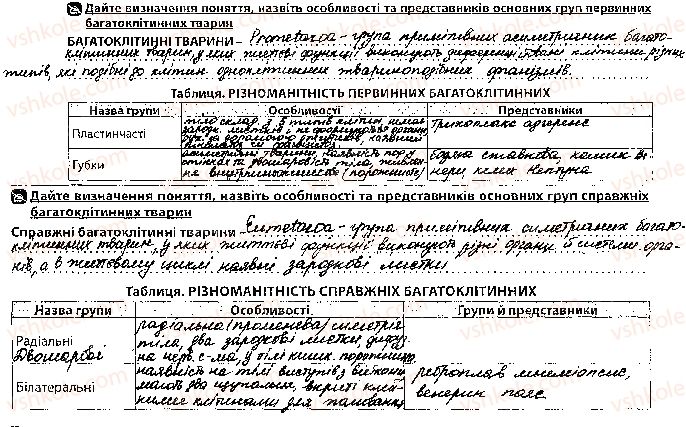 Дайте визначення поняття, назвіть особливості та представників основних груп первинних
багатоклітинних тварин
БАГАТОКЛІТИННІ ТВАРИНИ – Prometazoa - група примітивних асиметричних багато-
клітинних тварин, у яких життєві функції виконують диференційовані клітини різних
типів, які подібні до клітин одноклітинних твариноподібних організмів.
Таблиця. РІЗНОМАНІТНІСТЬ ПЕРВИННИХ БАГАТОКЛІТИННИХ
Назва групи Особливості Представники
Пластинчасті
тіло склад. з клітин, немає
зародк. листків і не формуються органи
рух за допомогою
Трихоплакс
Губки
асиметричні тварини, наявність пор у
стінках та двошаровість тіла,
на внутрішньоклітинне (порожнинне)
Бадяга ставкова, кошик Ве-
нери, келих Нептуна
Дайте визначення поняття, назвіть особливості та представників основних груп справжніх
багатоклітинних тварин
Справжні багатоклітинні тварини – Eumetazoa - група примітивних симетричних багато-
клітинних тварин, у яких життєві функції виконують різні органи й системи орга-
нів, а в життєвому циклі наявні зародкові листки
Таблиця. РІЗНОМАНІТНІСТЬ СПРАВЖНІХ БАГАТОКЛІТИННИХ
Назва групи Особливості Групи й представники
Радіальні
Двошарові
радіальна (променева) симетрія
тіла, два зародкові листки, дифуз-
на нерв. с-ма, у тілі кишк. порожнина
Білатеральні
наявність на тілі виступів з війками
мають два щупальця, вкриті клей-
кими клітинами для полювання
реброплав мнеміопсис,
венерин пояс
vshkole.com